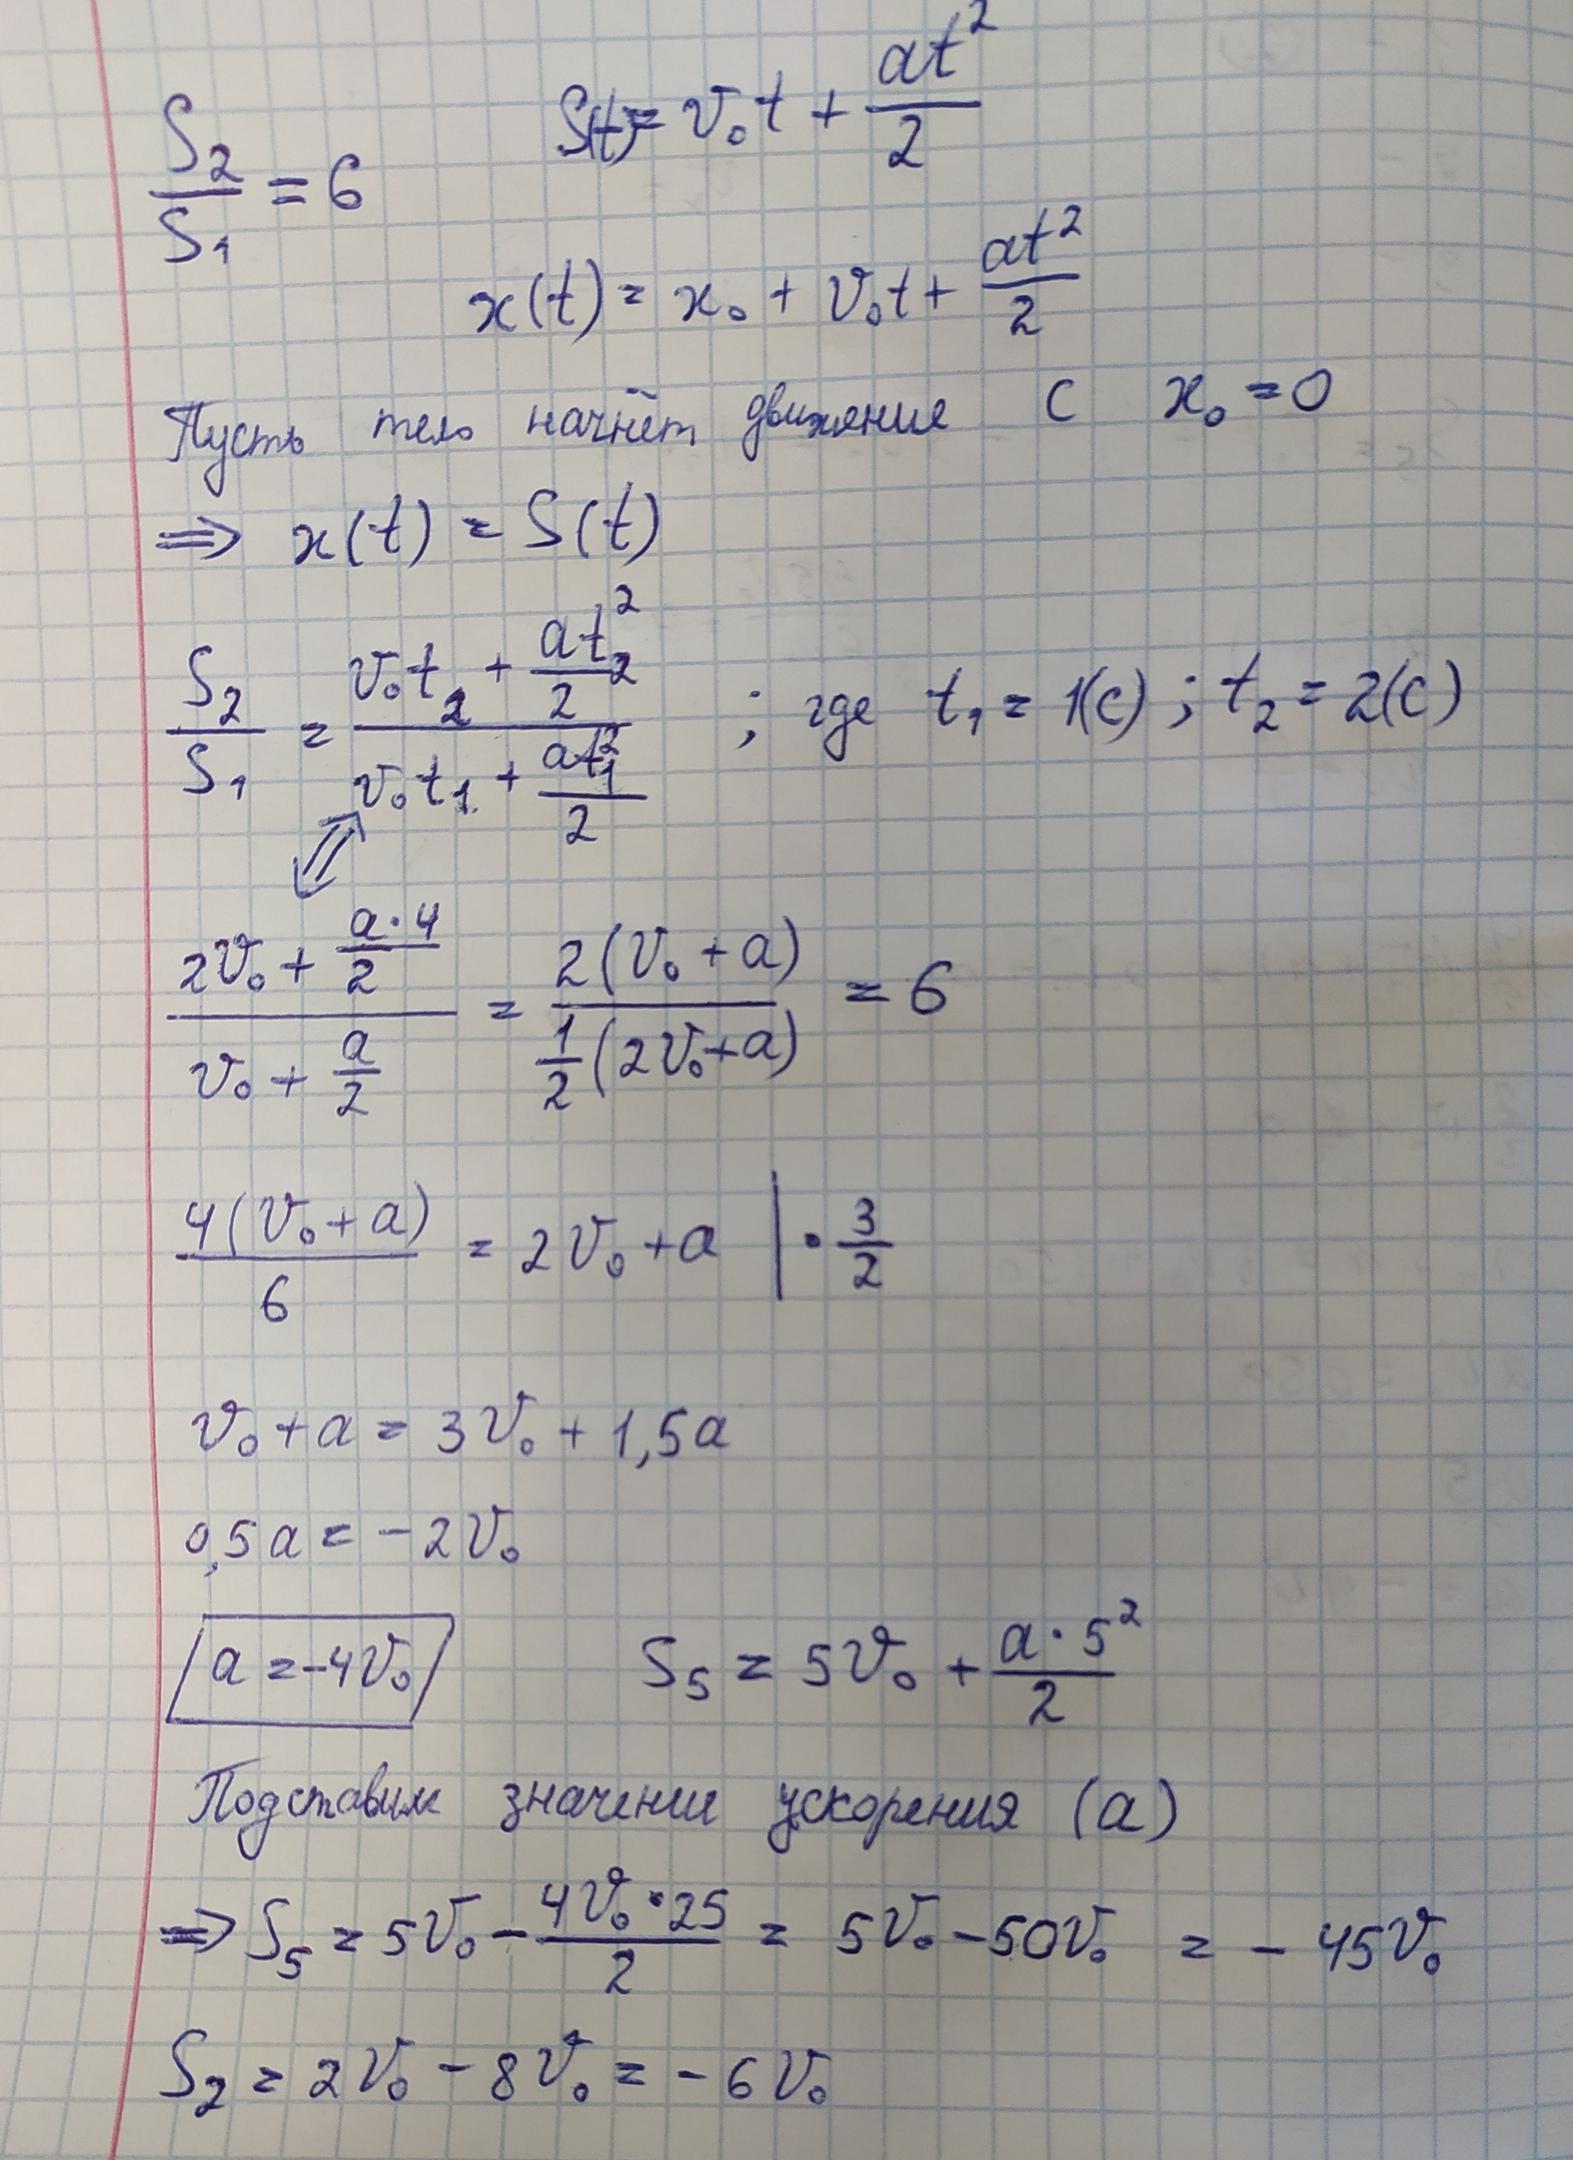 S₂/S₁ = 6
S(t) = v₀t + at²/2
x(t) = x₀ + v₀t + at²/2
Пусть тело начнёт движение с x₀ = 0
⇒ x(t) = S(t)
S₂/S₁ = (v₀t₂ + at₂²/2)/(v₀t₁ + at₁²/2) ; где t₁ = 1(с) ; t₂ = 2(с)
⇕
(2v₀ + a·4/2)/(v₀ + a/2) = 2(v₀ + a)/(1/2(2v₀ + a)) = 6
4(v₀ + a)/6 = 2v₀ + a | · 3/2
v₀ + a = 3v₀ + 1,5a
0,5a = -2v₀
a = -4v₀
S₅ = 5v₀ + a·5²/2
Подставим значение ускорения (a)
⇒ S₅ = 5v₀ - 4v₀·25/2 = 5v₀ - 50v₀ = - 45v₀
S₂ = 2v₀ - 8v₀ = - 6v₀